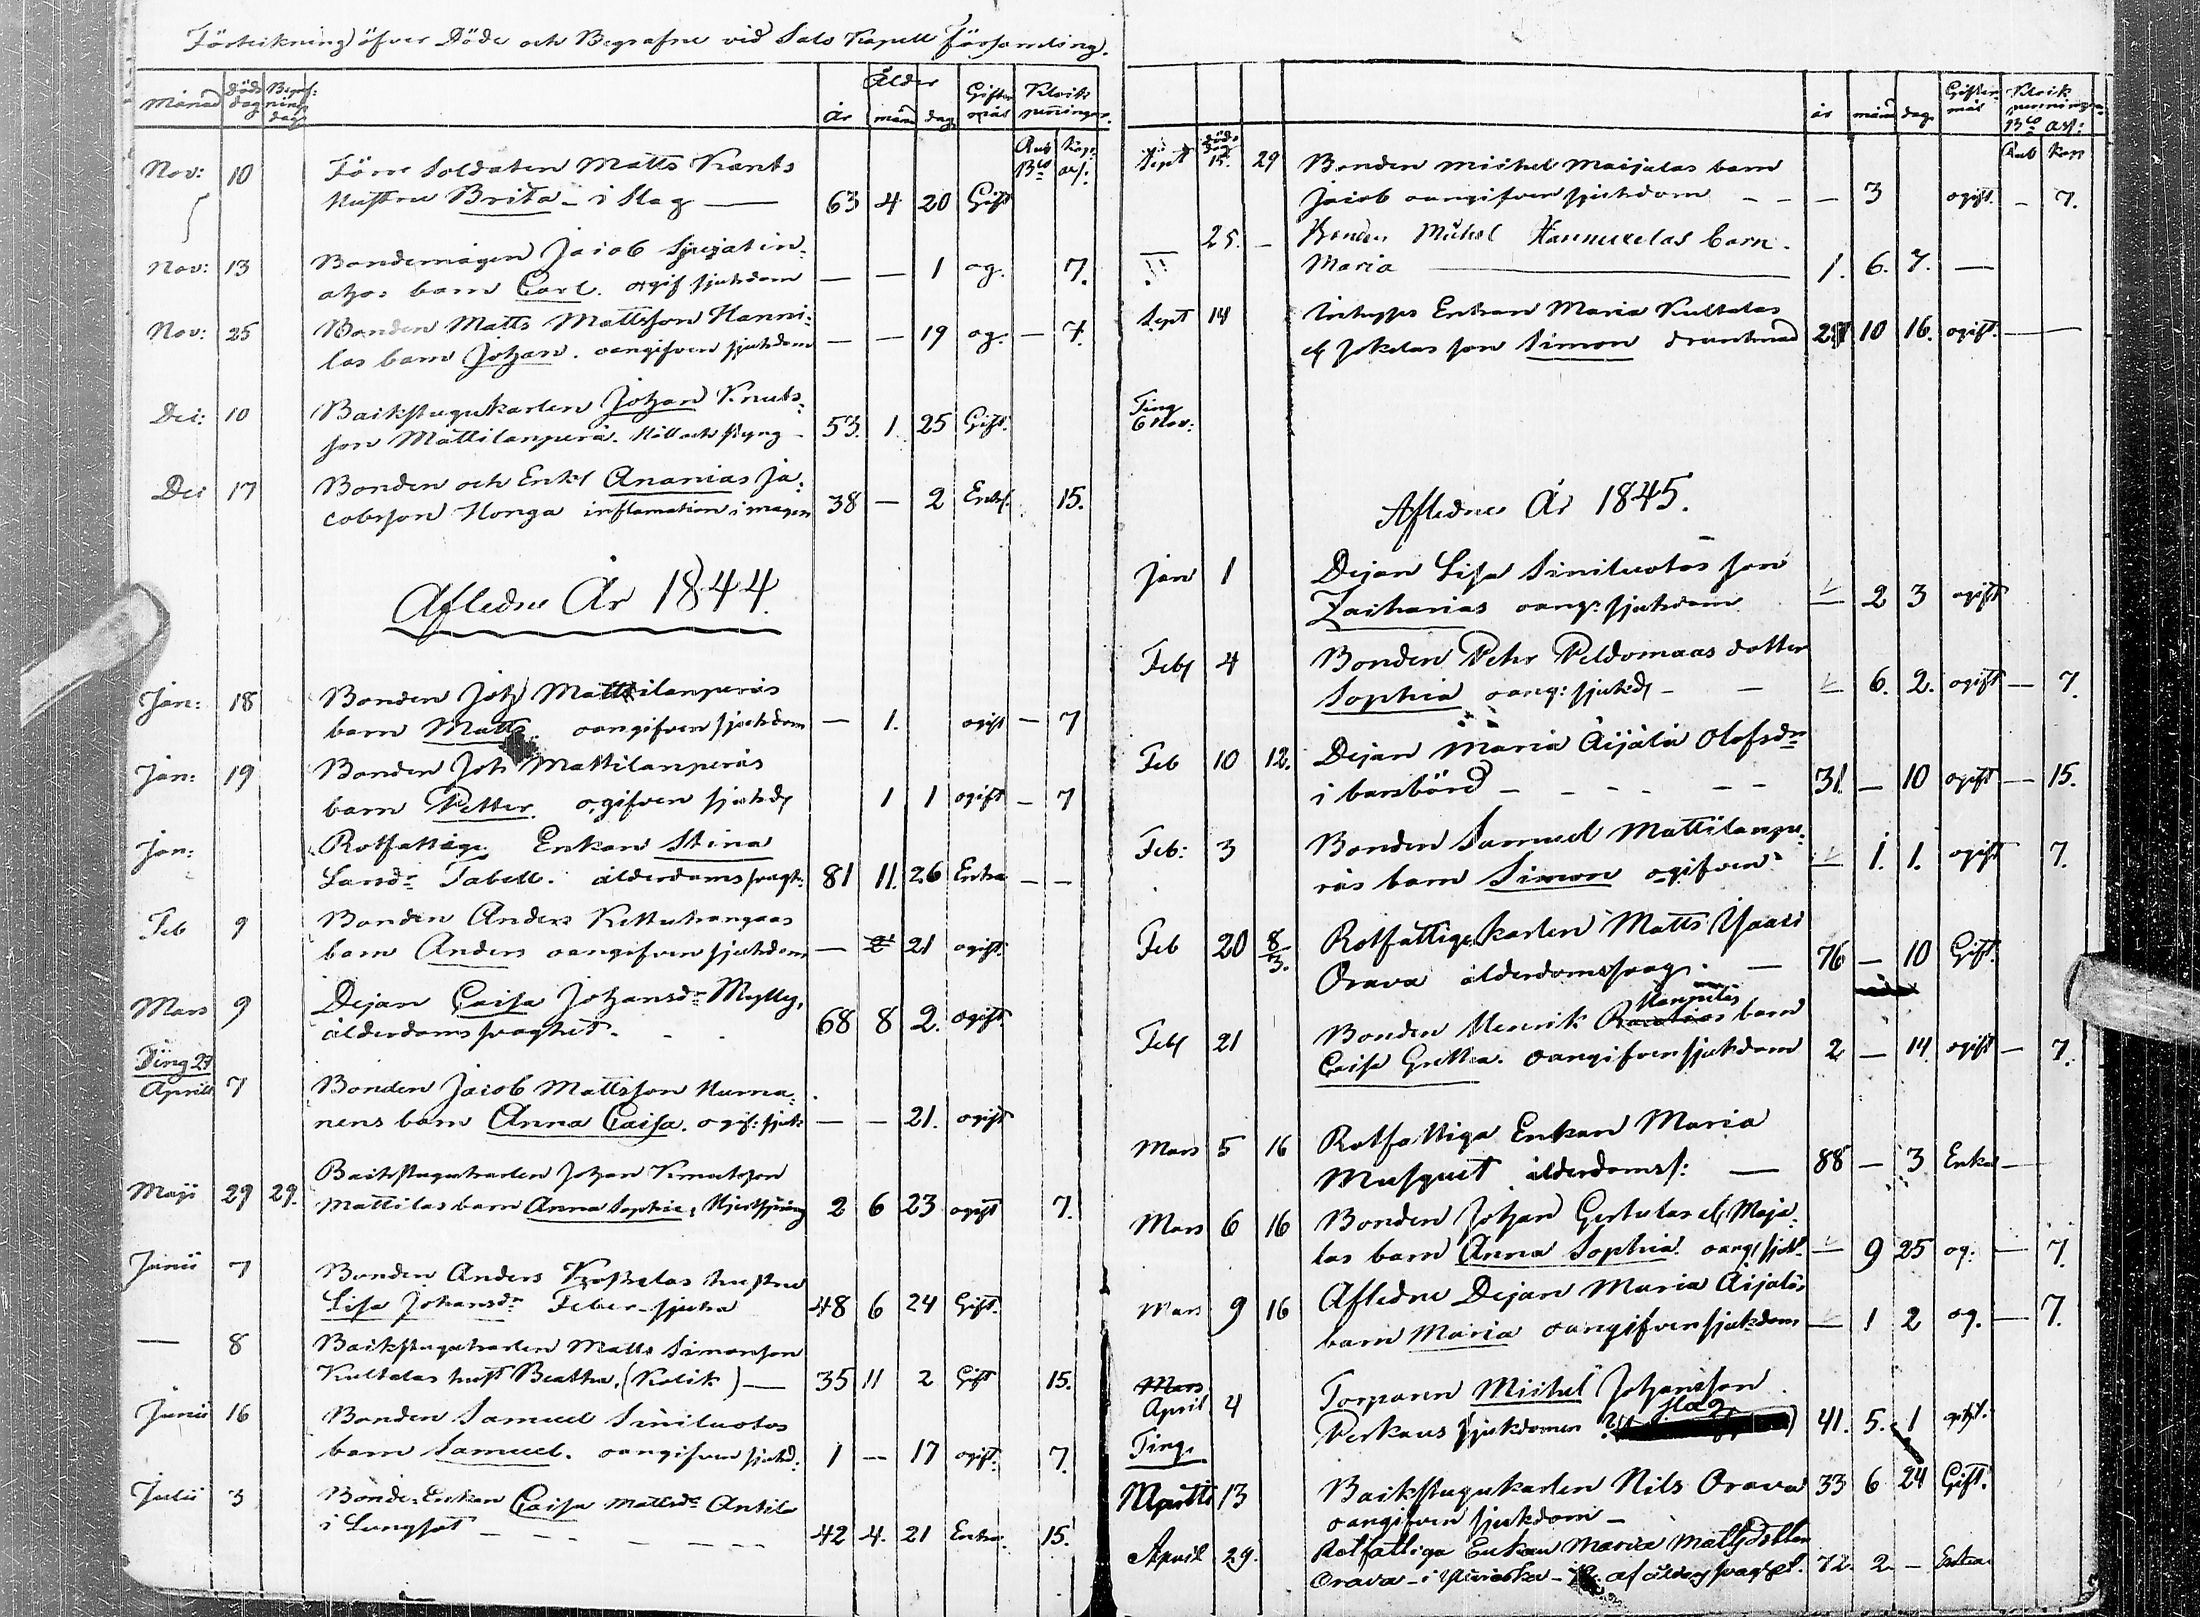 Förteikning öfver Döde och Begrafne vid Salo Kapell församling.
Månad Döds dag Begrafnings dag Ålder År mån dag Giftermål Klock penningar.
Rub Kop:
Bco asf:
Nov: 10 Förre Soldaten Matts Kants
Hustru Brita - i slag — 63 4 20 Gift
Nov: 13 Bondemågen Jacob
barn Carl. ogif sjukdom — — 1 og. 7.
Nov: 25 Bonden Matts Mattsson Hanni-
las barn Johan. oangifven sjukdom — — 19 og. — 7.
Dec: 10 Backstugukarlen Johan Knuts-
son Mattilanperä. Håll och styng - 53. 1. 25 Gift.
Dec 17 Bonden och Enkl Ananias Ja-
cobsson Honga inflamation i magen 38 — 2 Enkl. 15.
Afledne År 1844.
Jan: 18 Bonden Joh Mattilanperäs
barn Matts. oangifven sjukdom — 1. ogift — 7
Jan: 19 Bonden Joh Mattilanperäs
barn Petter. ogifven sjukd 1 1 ogift — 7
Jan: Rotfattige Enkan Stina
Tabell. ålderdomssvagh: 81 11. 26 Enka — —
Feb 9 Bonden Anders Kettukangas
barn Anders oangifven sjukdom — 21 ogift.
Mars 9 Dejan Caisa Johansdr Mylly,
ålderdomssvaghet. 68 8 2. ogift.
Ting 27
April 7 Bonden Jacob Mattsson Nurma-
nens barn Anna Caisa. ogif: sjuk — — 21. ogift
Maji 29 29. Backstugukarlen Johan Knutsson
Mattilas barn Anna Sophia, 2 6 23 ogift 7.
Junii 7 Bonden Anders Koskelas hustru
Lisa Johansdr Feber-sjuka 48 6 24 Gift.
— 8 Backstugukarlen Matts Simonson
Kultalas hust Beatha. (Kolik) — 35 11 2 Gift 15.
Junii 16 Bonden Samuel Siniluotos
barn Samuel. oangifven sjukd: 1 — 17 ogift. 7.
Julii 3 Bonde-Enkan Caisa Mattsdr Antila
i Lungsot — — — 42 4. 21 Enka. 15.
år mån dag. Giftermål Klock penningar
Bco asf:
Rub Kop
Sept döds dag 15. 29 Bonden Michel Maijalas barn
Jacob oangifven sjukdom — — — 3 ogift. — 7.
25. — Bonden Michel Hannuxelas barn.
Maria — 1. 6. 7. —
Sept 14 Inhyses Enkan Maria Kultalas
el Jokelas son Simon drunknad 10 16. ogift. —
Ting
6 Nov:
Afledne År 1845.
Jan 1 Dejan Lisa Siniluotos son
Zacharias oang: sjukdom — 2 3 ogift
Feb 4 Bonden Pehr Peldomaas dotter
Sophia oang: sjukd — — 6. 2. ogift — 7.
Feb 10 12. Dejan Maria Äijälä Olofsdr
i barsbörd — — — 31. — 10 ogift — 15.
Feb: 3 Bonden Samuel Mattilanpe-
räs barn Simon ogifven — 1. 1. ogift 7.
Feb 20 8/3. Rotfattige karlen Matts
Orava ålderdomssvag. — 76 — 10 Gift.
Feb 21 Bonden Henrik Hannilas barn
Caisa Gretha. oangifven sjukdom 2 — 14 ogift — 7.
Mars 5 16 Rotfattiga Enkan Maria
Musquet ålderdomss: — 88 — 3 Enka —
Mars 6 16 Bonden Johan Gertulas el Maja-
las barn Anna Sophia. oang sjukd — 9 25 og: — 7.
Mars 9 16 Afledne Dejan Maria Äijäläs
barn Maria oangifven sjukdom — 1 2 og. — 7.
Mars
April 4 Torparen Michel Johansson
Perkaus sjukdomen ? slag 41. 5. 1 ogift.
Ting.
Martii 13 Backstugukarlen Nils Orava 33 6 24 Gift.
oangifven sjukdom —
April 29. Rotfattiga Enkan Maria Mattsdotter
Orava - i - af ålderssvaghet. 72. 2. — Enka